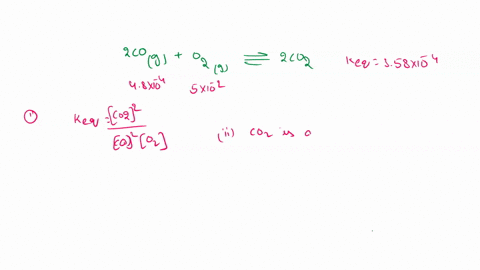 2CO(g) + O2(g) ⇌ 2CO2 Keq = 3.58×10⁻⁴
4.8×10⁻⁴ 5×10⁻²
(i) Keq = [CO2]² / [CO]² [O2]
(ii) CO2 is o